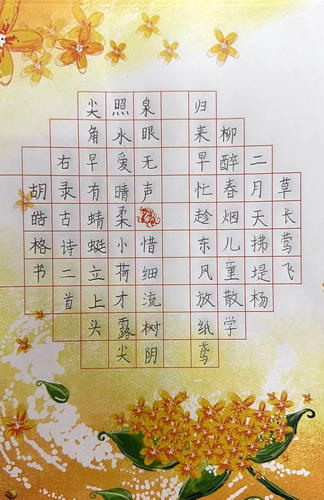 草长莺飞
二月天拂堤杨
柳醉春烟儿童散学
归来早忙趁东风放纸鸢
泉眼无声惜细流树阴
照水爱晴柔小荷才露尖
尖角早有蜻蜓立上头
右录古诗二首
胡皓格书